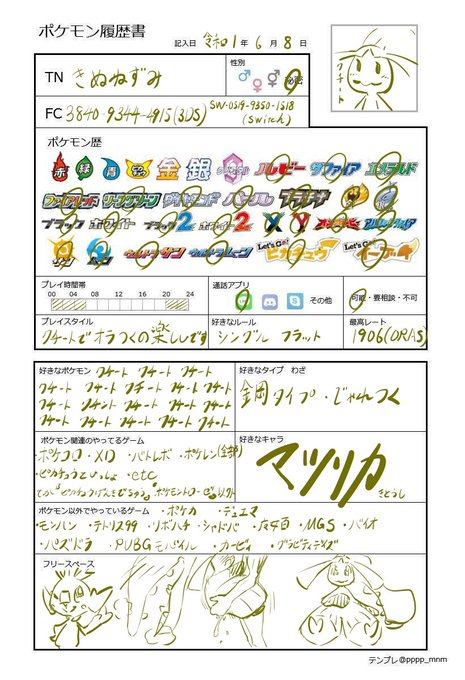 ポケモン履歴書
記入日 令和1年6月8日
クチート
TN きぬねずみ
性別
秘密
FC 3840-9344-4915(3DS) SW-0519-9350-1518 (switch)
ポケモン歴
赤 緑 青 ピカチュウ 金 銀 クリスタル ルビー サファイア エメラルド
ファイアレッド リーフグリーン ダイヤモンド パール プラチナ
ブラック ホワイト ブラック2 ホワイト2 X Y オメガルビー アルファサファイア
サン ムーン ウルトラサン ウルトラムーン Let's Go! ピカチュウ Let's Go! イーブイ
プレイ時間帯
00 04 08 12 16 20 24
通話アプリ
その他
可能・要相談・不可
プレイスタイル
クチートでオラつくの楽しいです
好きなルール
シングル フラット
最高レート
1906(ORAS)
好きなポケモン クチート クチート クチート
クチート クチート クチート クチート クチート
クチート クチート クチート クチート クチート
クチート クチート クチート クチート クチート
好きなタイプ わざ
鋼タイプ・じゃれつく
ポケモン関連のやってるゲーム
・ポケコロ ・XD ・バトレボ ・ポケレン(全部)
・ピカチュウといっしょ ・etc
好きなキャラ
マツリカ
さとうし
ポケモン以外でやっているゲーム ・ポケカ ・デュエマ
・モンハン ・テトリス99 ・リボハチ ・シャドバ ・MGS ・バイオ
・パズドラ ・PUBGモバイル ・カービィ ・グラビティデイズ
フリースペース
テンプレ@pppp_mnm